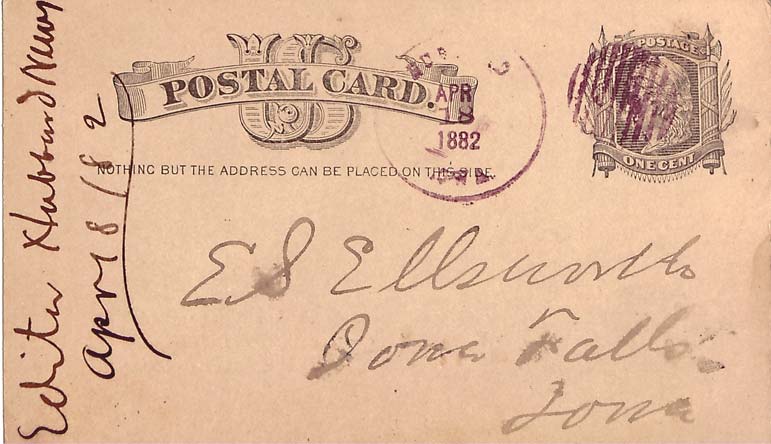 US
POSTAL CARD.
NOTHING BUT THE ADDRESS CAN BE PLACED ON THIS SIDE.
APR
18
1882
POSTAGE
ONE CENT
E S Ellsworth
Iowa Falls
Iowa
Editor Hubbard News
Apr 18/82